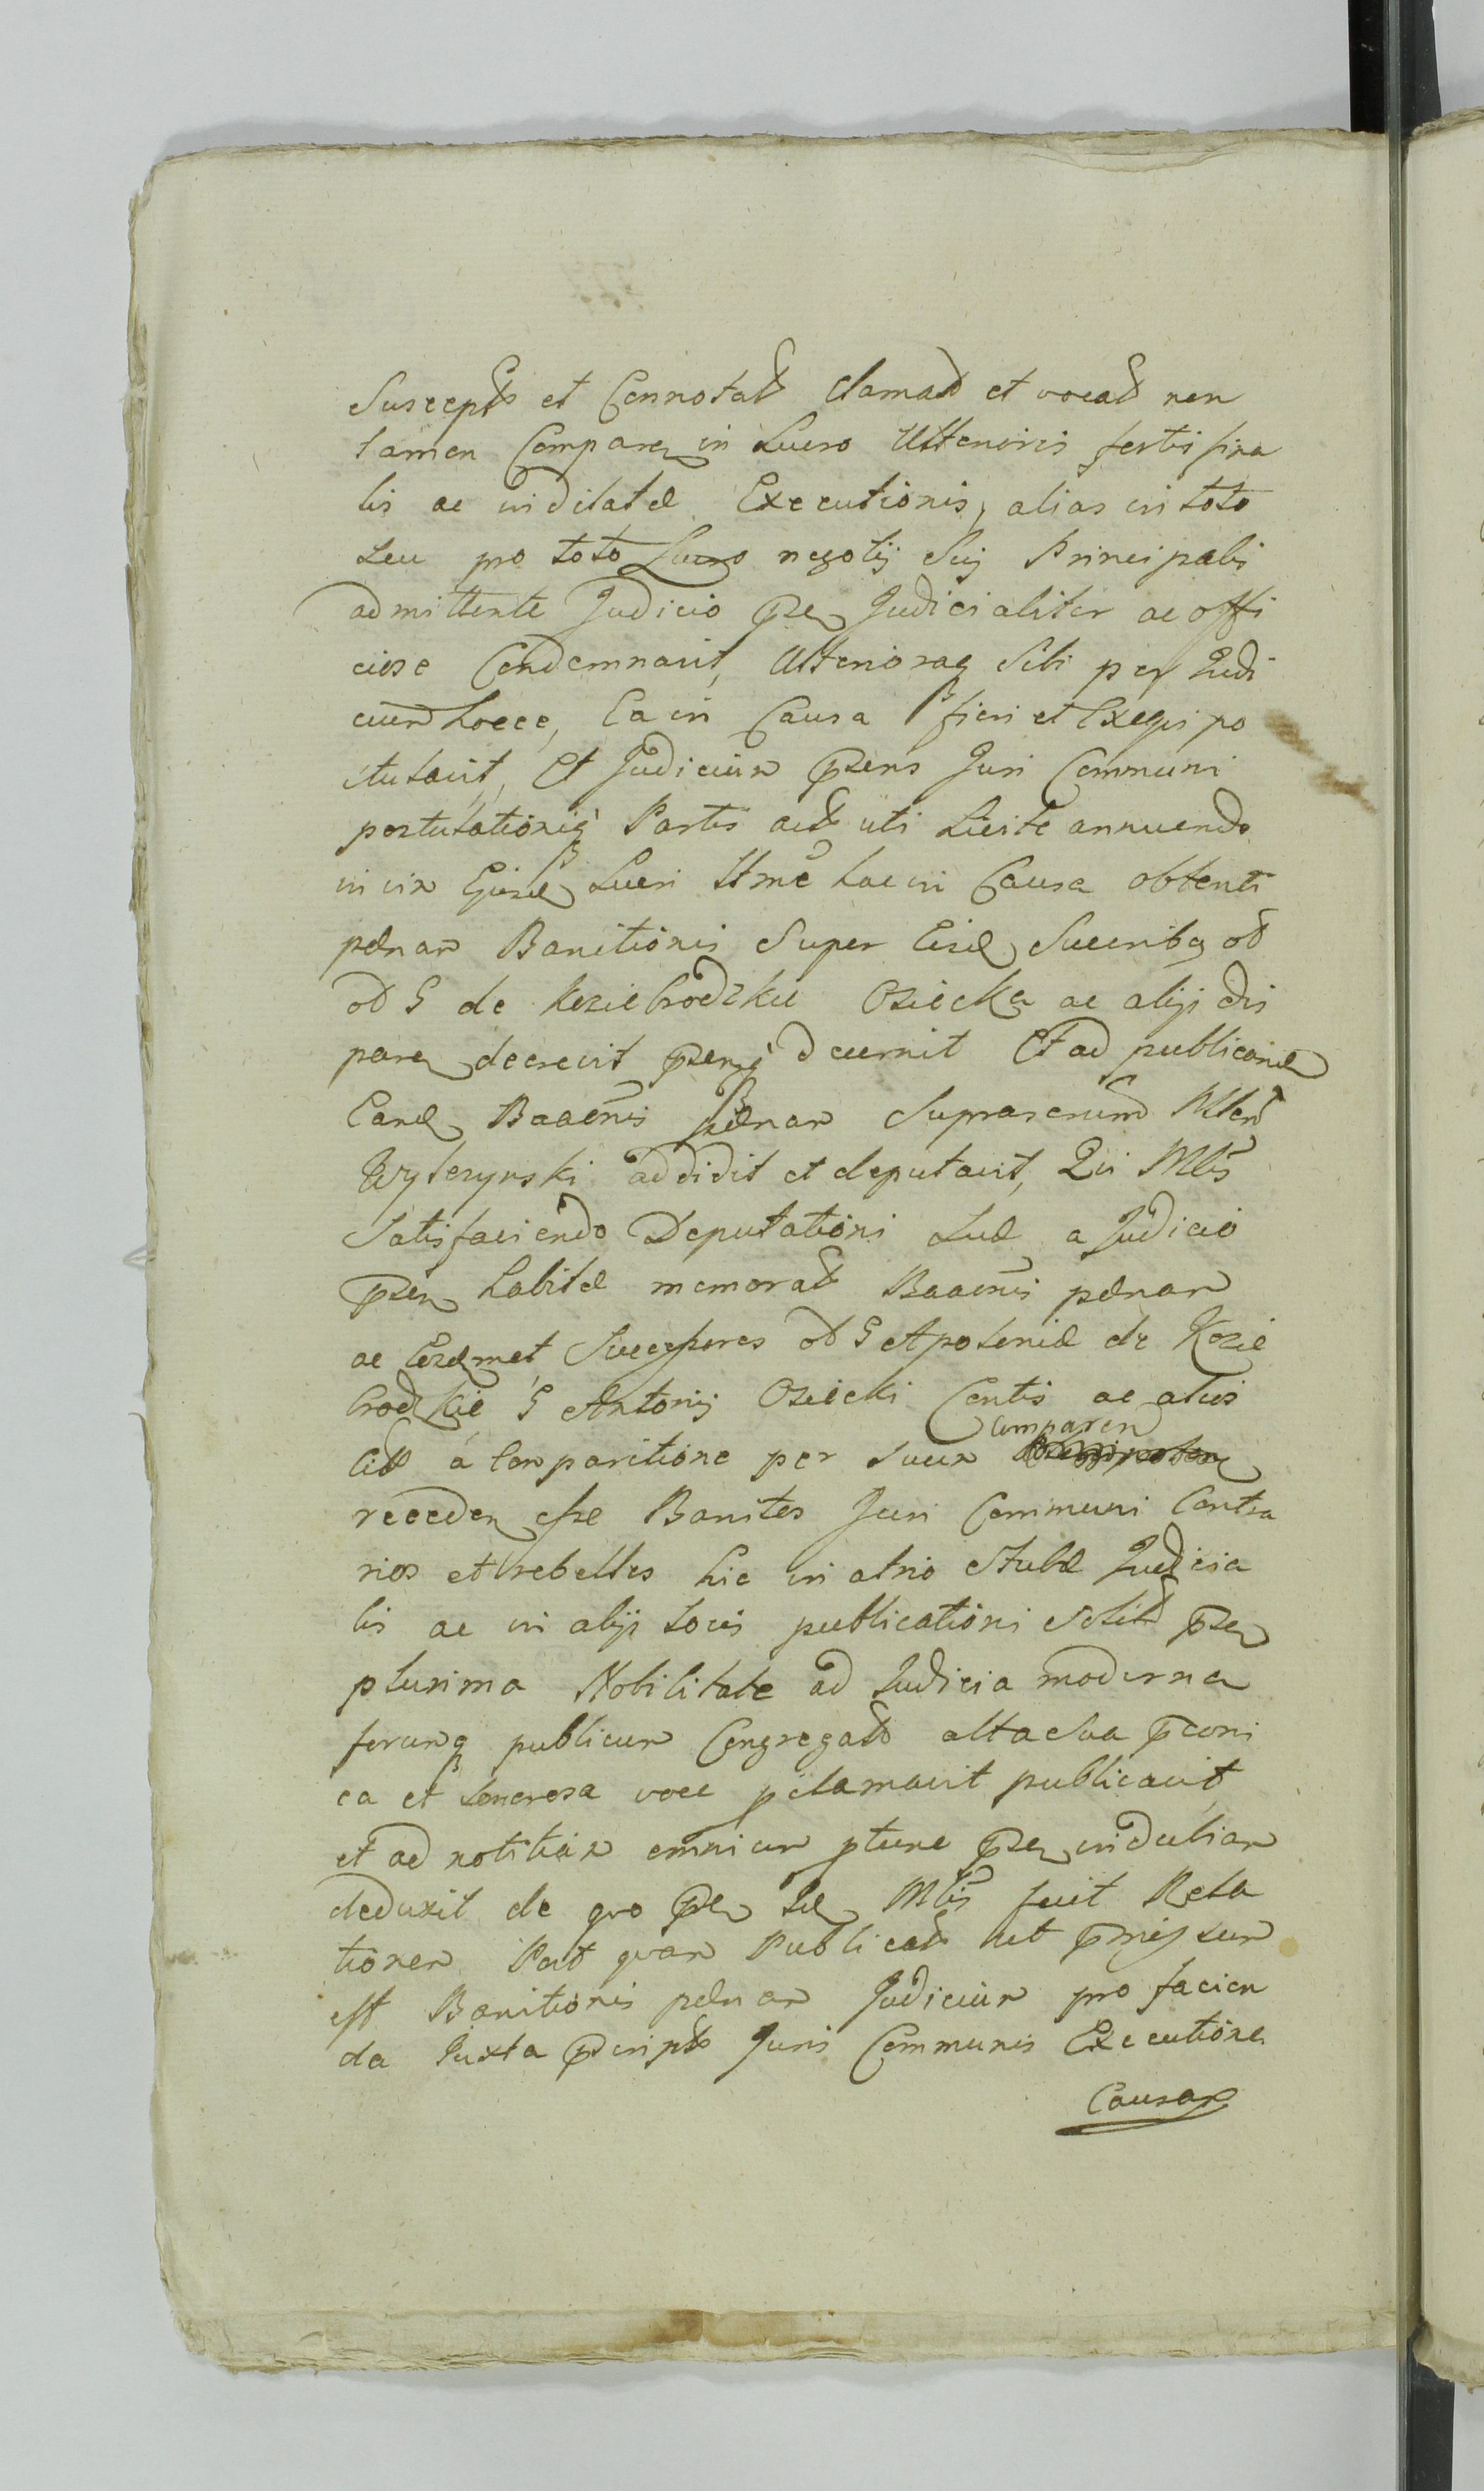 Suscept et Connotat clamat et vocat non
tamen Comparen in Lucro Ulterioris fertis fina
lis ac indilatæ Executionis, alias in toto
seu pro toto Lucro negotij Sui Principalis
admittente Judicio pſen Judicialiter ac offi
ciose Condemnavit, Ulterioraq Sibi per Judi
cium hocce, Ea in Causa fieri et Exequi po
stulavit, Et Judicium pſens Juri Communi
postulationiq Partis act uti Licite annuendo
in vim Lucri Ttme hac in Causa obtenti
pænam Banitionis Super Eisd Succumben ob
ob G de Koziebrodzkie Osiecka ac alijs
paren decrevit decernit Et ad publicand
Eand Baaonis pænam Suprascrium Mlem
Wylezynski addidit et deputavit, Qui Mlis
Satisfaciendo Deputationi Suæ a Judicio
pſen habitæ memorat Baaonis pænam
ac Eosdmet Successores ob G Apoloniæ de Kozie
brodzkie G Antonij Osiecki Contis ac alios
Citt a Comparitione per Suum Comparen
receden eſse Banitos Juri Communi Contra
rios et rebelles hic in atrio Stubæ Judicia
lis ac in alijs Locis publicationi Solit pſen
plurima Nobilitate ad Judicia moderna
forumq publicum Congregat alta Sua pconi
ca et Sonorosa voce pclamavit publicavit
et ad notitiam omnium ptunc pſen indubiam
deduxit de quo pſen Mlis fecit Rela
tionem Post quam Publicat ut pmiſsum
est Banitionis pænam Judicium pro facien
da Juxta pſcript Juris Communis Executione
Causam